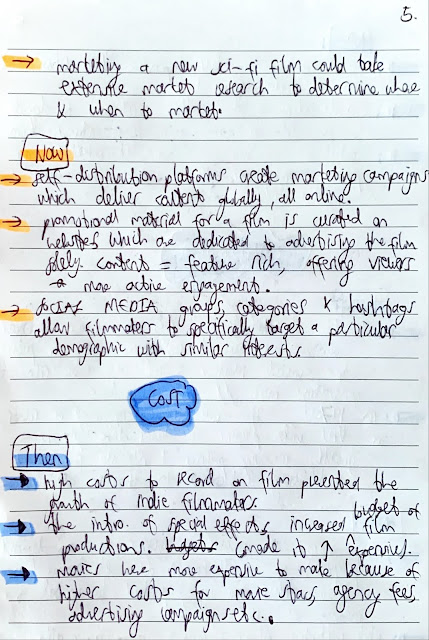 5.
→ marketing a new sci-fi film could take
extensive market research to determine where
& when to market.
Now
→ self-distribution platforms create marketing campaigns
which deliver content globally, all online.
→ promotional material for a film is curated on
websites which are dedicated to advertising the film
solely. content = feature rich, offering viewers
→ more active engagement.
→ SOCIAL MEDIA groups, categories & hashtags
allow filmmakers to specifically target a particular
demographic with similar interests.
COST
Then
→ high costs to record on film prevented the
growth of indie filmmakers.
→ the intro. of special effects, increased budget of film
productions. budgets (made it ↑ expensive).
→ movies were more expensive to make because of
higher costs for movie stars, agency fees,
advertising campaigns etc.